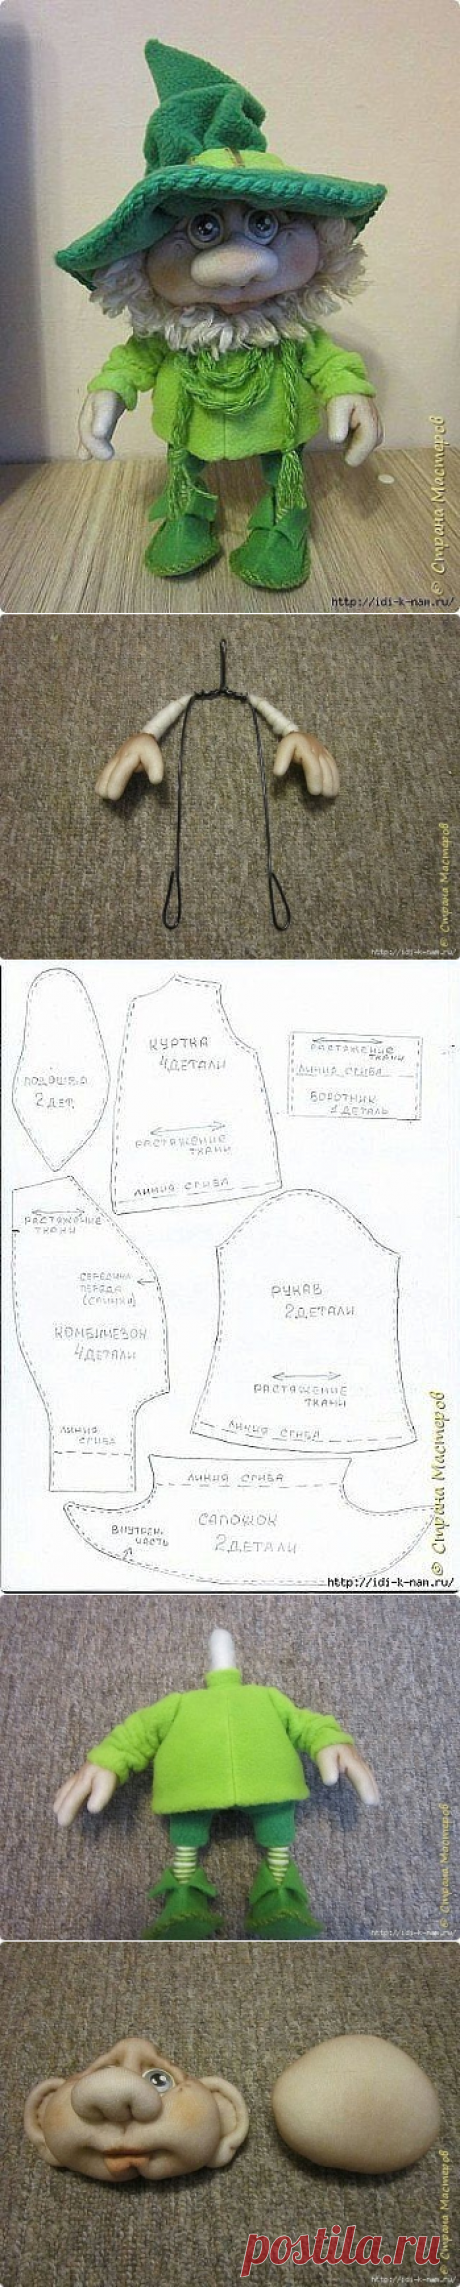 © Страна Мастеров
http://idi-k-nam.ru/
© Страна Мастеров
http://idi-k-nam.ru/
ПОДОШВА
2 ДЕТ.
КУРТКА
4 ДЕТАЛИ
РАСТЯЖЕНИЕ
ТКАНИ
ЛИНИЯ СГИБА
РАСТЯЖЕНИЕ
ТКАНИ
ЛИНИЯ СГИБА
ВОРОТНИК
1 ДЕТАЛЬ
РАСТЯЖЕНИЕ
ТКАНИ
СЕРЕДИНА
ПЕРЕДА
(СПИНКИ)
КОМБИНЕЗОН
4 ДЕТАЛИ
ЛИНИЯ
СГИБА
РУКАВ
2 ДЕТАЛИ
РАСТЯЖЕНИЕ
ТКАНИ
ЛИНИЯ СГИБА
ЛИНИЯ СГИБА
САПОЖОК
2 ДЕТАЛИ
ВНУТРЕН.
ЧАСТЬ
© Страна Мастеров
http://idi-k-nam.ru/
© Страна Мастеров
http://idi-k-nam.ru/
© Страна Мастеров
postila.ru
http://idi-k-nam.ru/